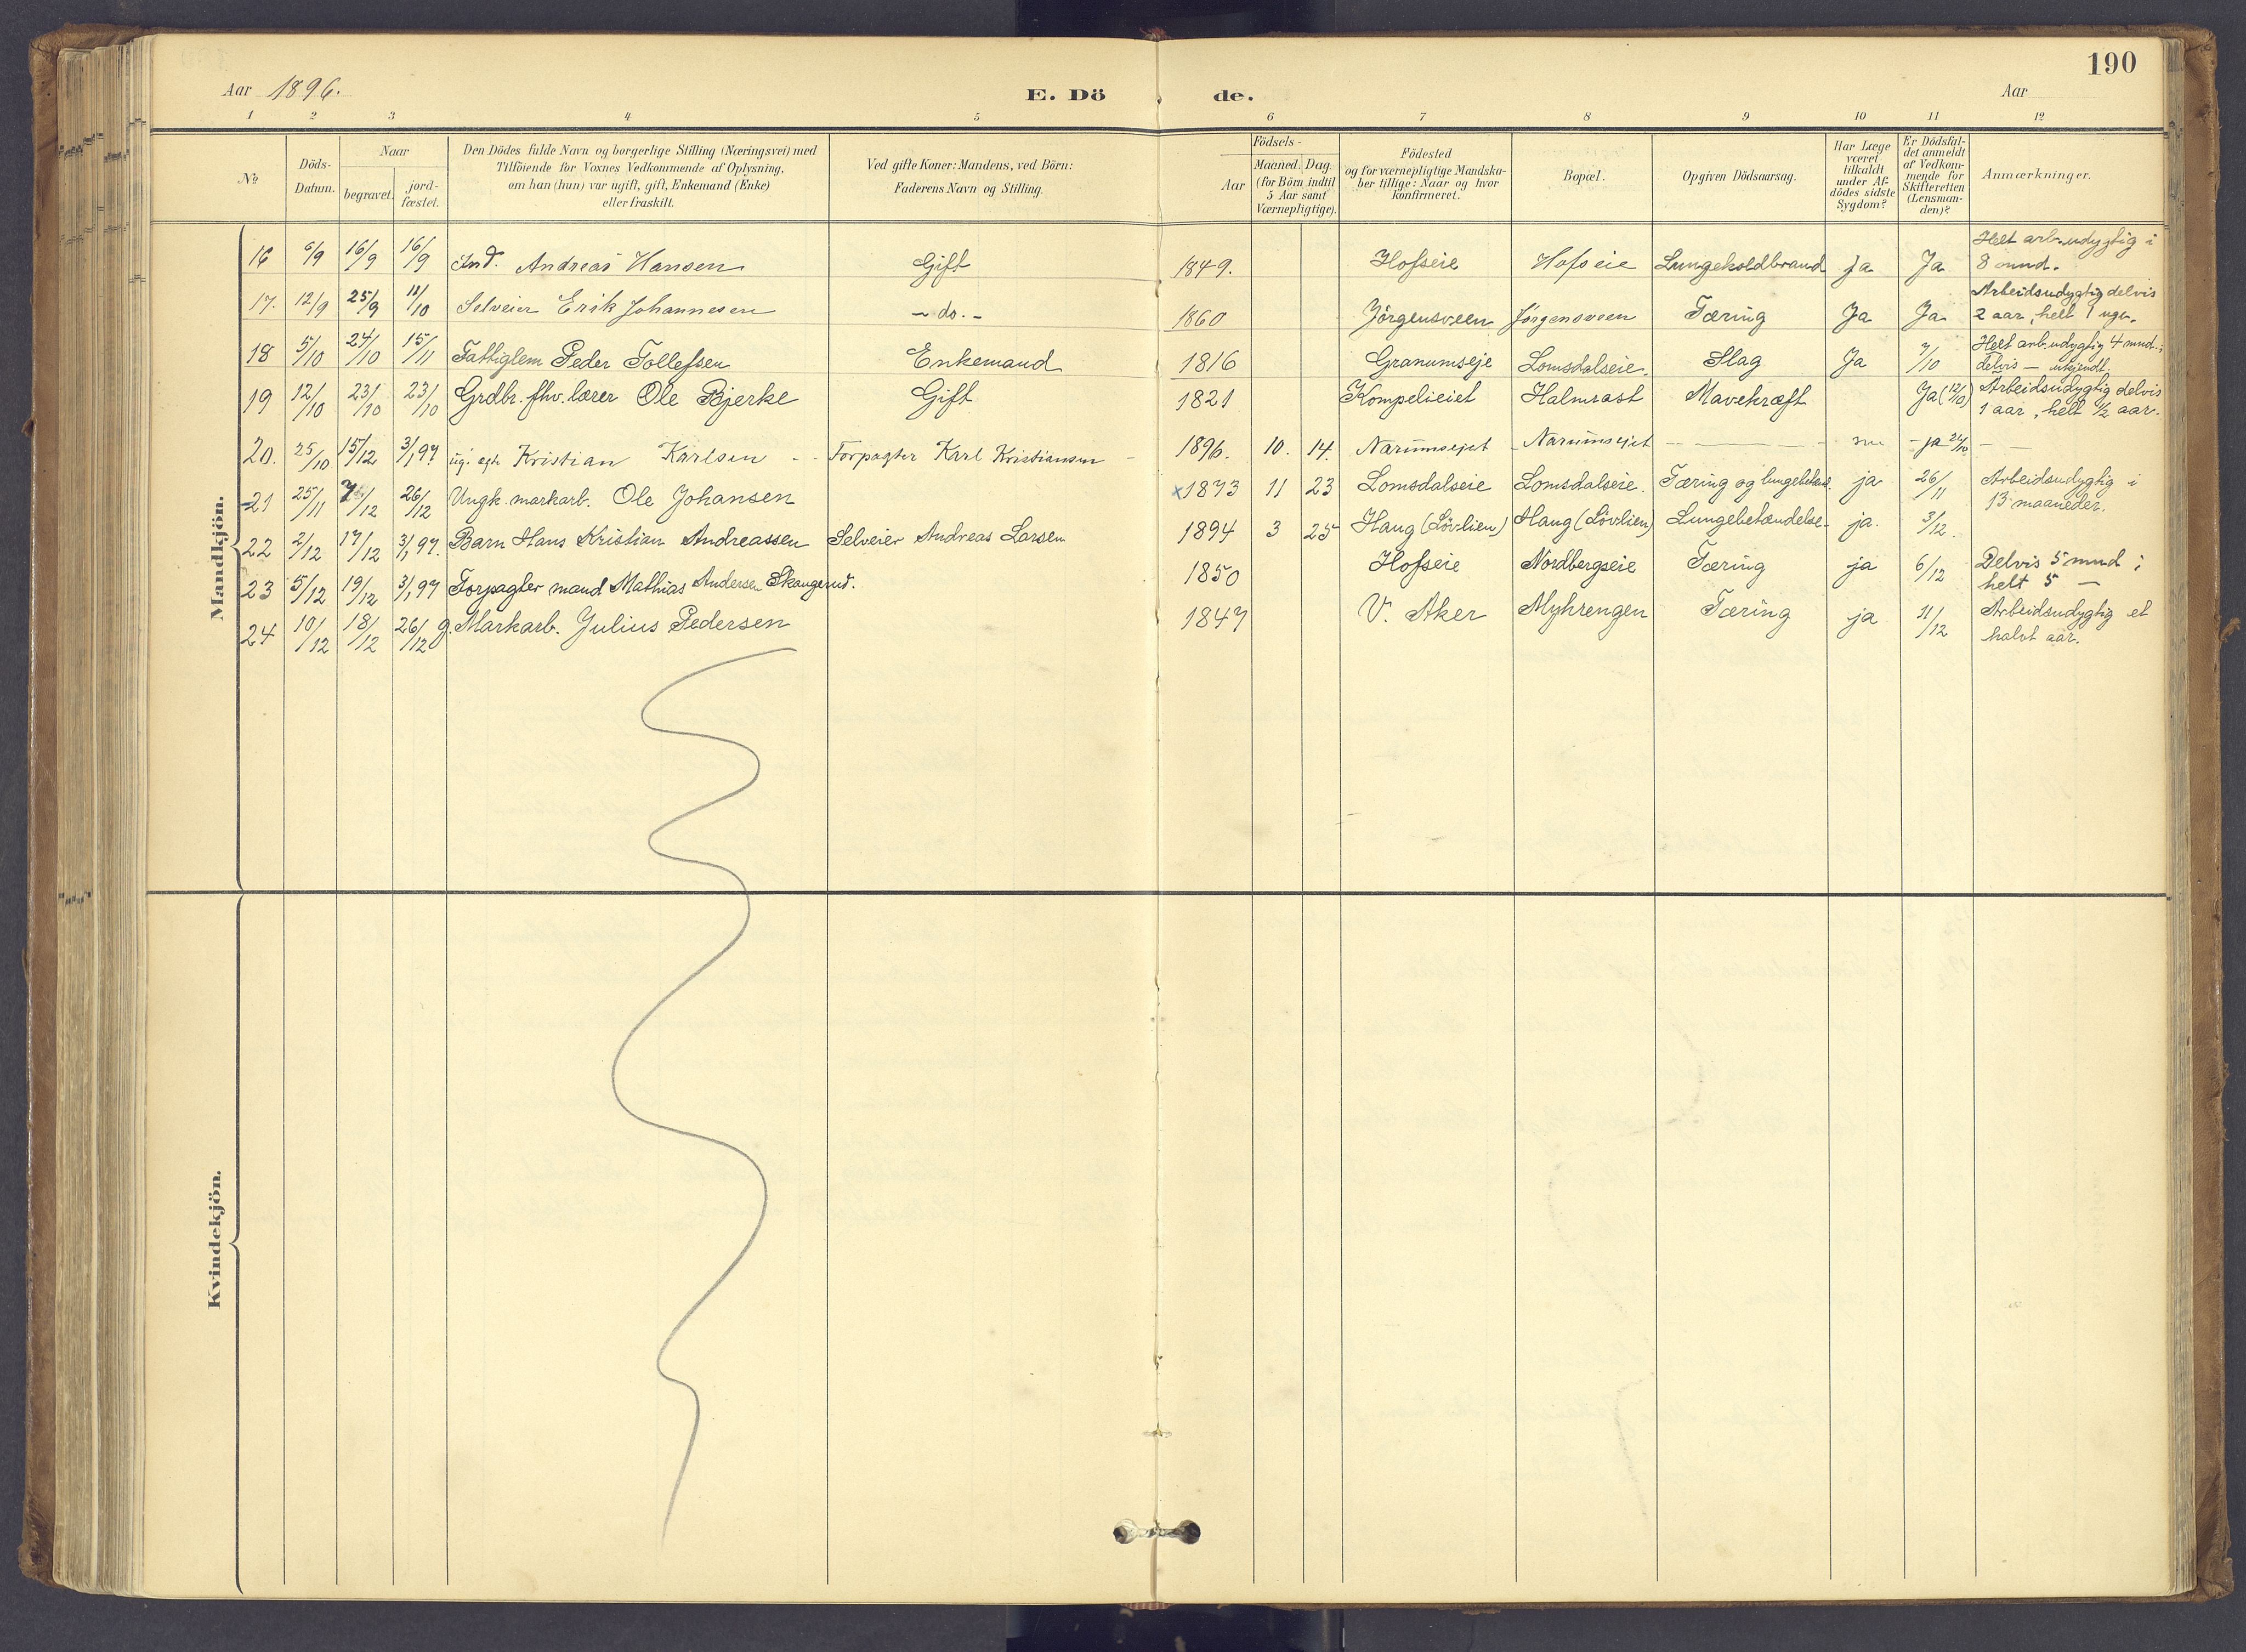 190
Aar 1896. E. Dö de. Aar
1 2 3 4 5 6 7 8 9 10 11 12
№ Döds-Datum. Naar begravet. jord-fæstet. Den Dödes fulde Navn og borgerlige Stilling (Næringsvei) med Tilföiende for Voxnes Vedkommende af Oplysning, om han (hun) var ugift, gift, Enkemand (Enke) eller fraskilt. Ved gifte Koner: Mandens, ved Börn: Faderens Navn og Stilling. Födsels- Aar Maaned. Dag. (for Börn indtil 5 Aar samt Værnepligtige). Födested og for værnepligtige Mandskaber tillige: Naar og hvor konfirmeret. Bopæl. Opgiven Dödsaarsag. Har Læge været tilkaldt under Afdödes sidste Sygdom? Er Dödsfaldet anmeldt af Vedkommende for Skifteretten (Lensmanden)? Anmærkninger.
Mandkjön.
16 6/9 16/9 16/9 Ind. Andreas Hansen Gift 1849. Hofseie Hofseie Lungekoldbrand Ja Ja Helt arb.udygtig i 8 mnd.
17. 12/9 25/9 11/10 Selveier Erik Johannesen — do. — 1860 Jörgensveen Jörgensveen Tæring Ja Ja Arbeidsudygtig delvis 2 aar, helt 1 uge.
18 5/10 24/10 15/11 Fattiglem Peder Tollefsen Enkemand 1816 Granumseje Lomsdalseie. Slag Ja 7/10 Helt arb.udygtig 4 mnd.; delvis — ukjendt.
19 12/10 23/10 23/10 Grdbr. fhv. lærer Ole Bjerke Gift 1821 Kompelieiet Halmrast Mavekræft Ja (12/10) Arbeidsudygtig delvis 1 aar, helt 1/2 aar.
20. 25/10 15/12 3/1 97 ug. egte Kristian Karlsen - - Forpagter Karl Kristiansen - 1896. 10. 14. Narumsejet Narumsejet - — - - ja 26/10 - —
21 25/11 7/12 26/12 Ungk. markarb. Ole Johansen x 1873 11 23 Lomsdalseie Lomsdalseie. Tæring og lungebetænd. ja 26/11 Arbeidsudygtig i 13 maaneder.
22 2/12 17/12 3/1 97. Barn Hans Kristian Andreassen Selveier Andreas Larsen 1894 3 25 Haug (Lövlien) Haug (Lövlien) Lungebetændelse. ja. 3/12.
23 5/12 19/12 3/1 97 Forpagter mand Mathias Andersen Skaugerud. 1850 Hofseie Nordbergseie Tæring ja 6/12 Delvis 5 mnd; helt 5 —
24 10/12 18/12 26/12 g. Markarb. Julius Pedersen 1847 V. Aker Myhrengen Tæring ja 11/12 Arbeidsudygtig et halvt aar.
Kvindekjön.